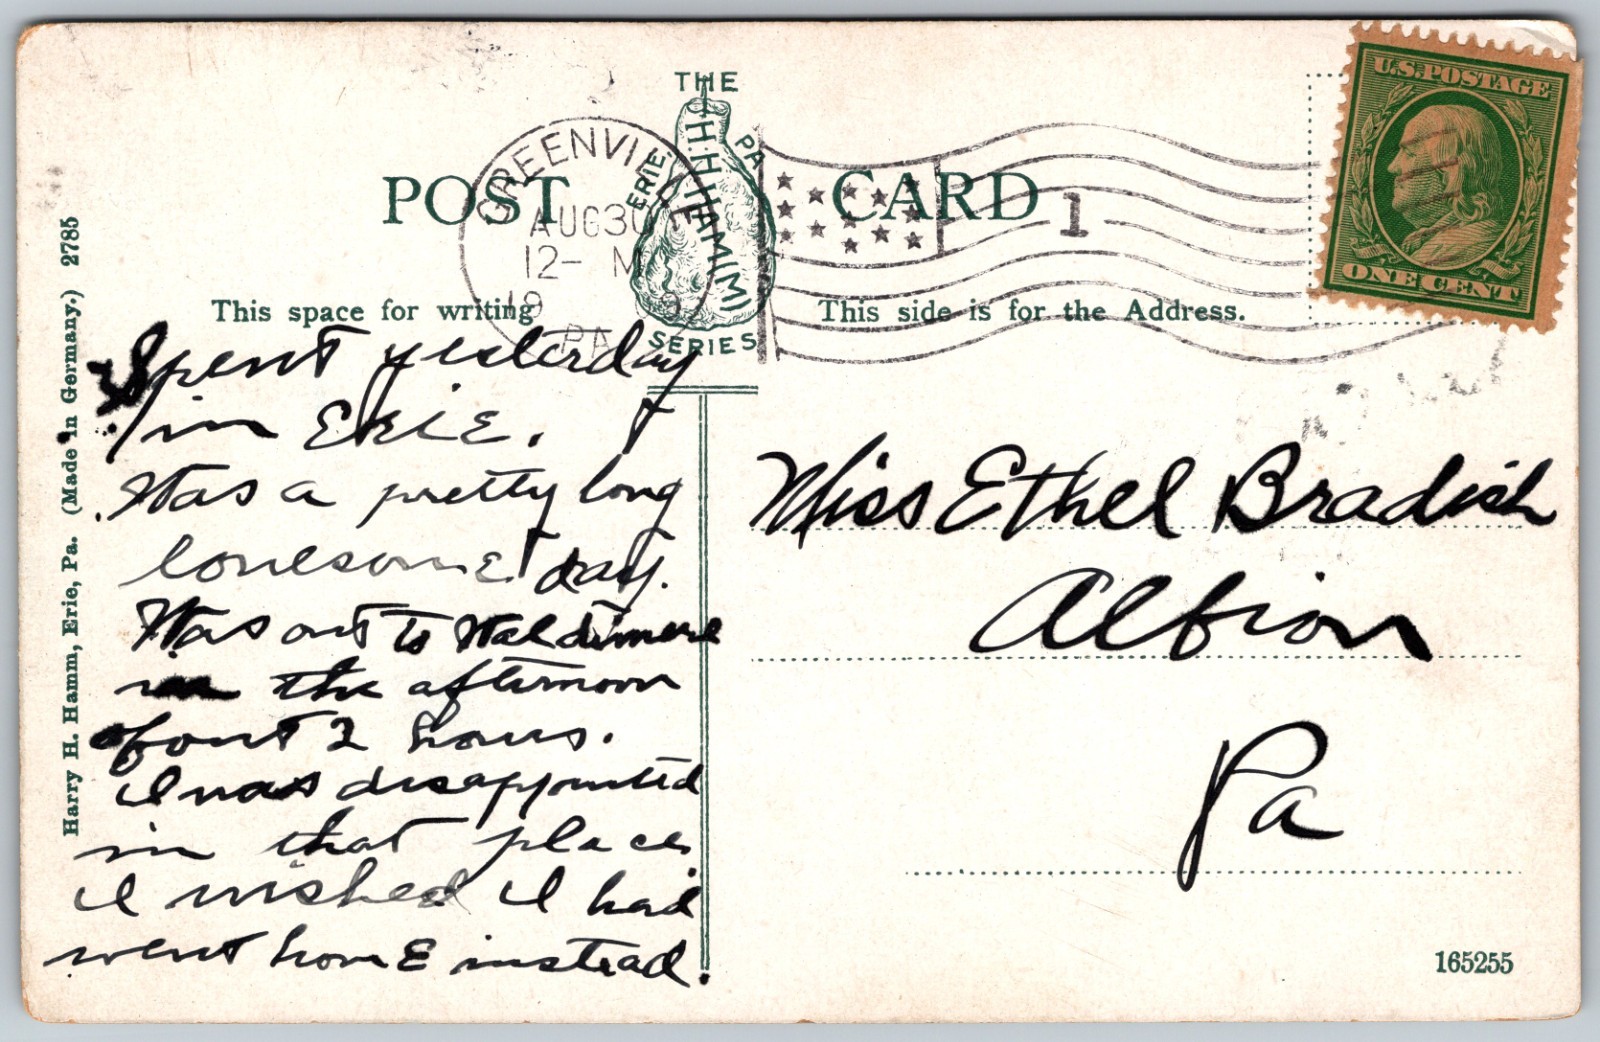 THE
H.H.HAMM
ERIE PA
SERIES
POST CARD
GREENVILLE
AUG 30
12- M
19 9
PA
1
U.S. POSTAGE
ONE CENT
This space for writing
This side is for the Address.
Spent yesterday
in Erie.
Was a pretty long
lonesome day.
Was out to Waldimere
in the afternoon
about 2 hours.
I was disappointed
in that place
I wished I had
went home instead.
Miss Ethel Bradish
Albion
Pa
Harry H. Hamm, Erie, Pa. (Made in Germany.) 2785
165255